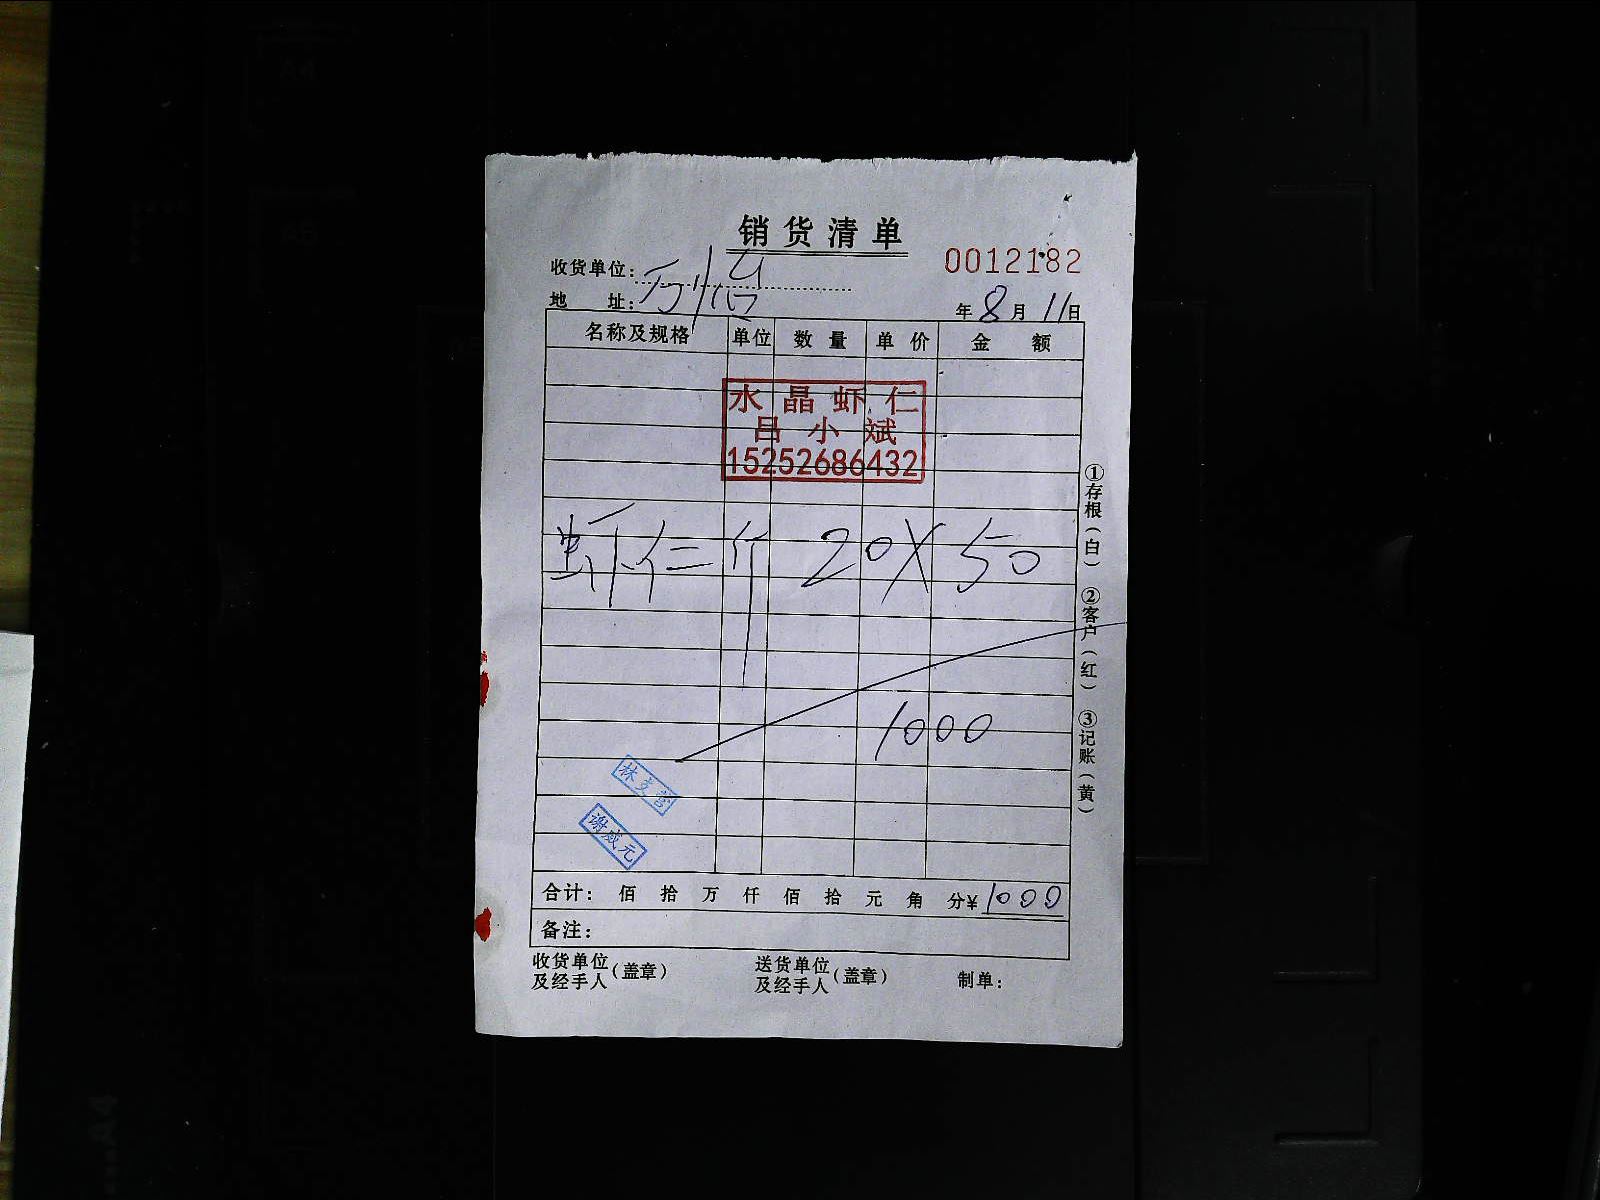 销货清单
0012182
收货单位：万怡
地 址：
年 8 月 11 日
名称及规格 单位 数量 单价 金额
水晶虾仁
吕小斌
15252686432
虾仁 斤 20 X 50
1000
林支营
谢威元
合计： 佰 拾 万 仟 佰 拾 元 角 分 ¥ 1000
备注：
收货单位及经手人（盖章）
送货单位及经手人（盖章）
制单：
①存根（白） ②客户（红） ③记账（黄）
A4